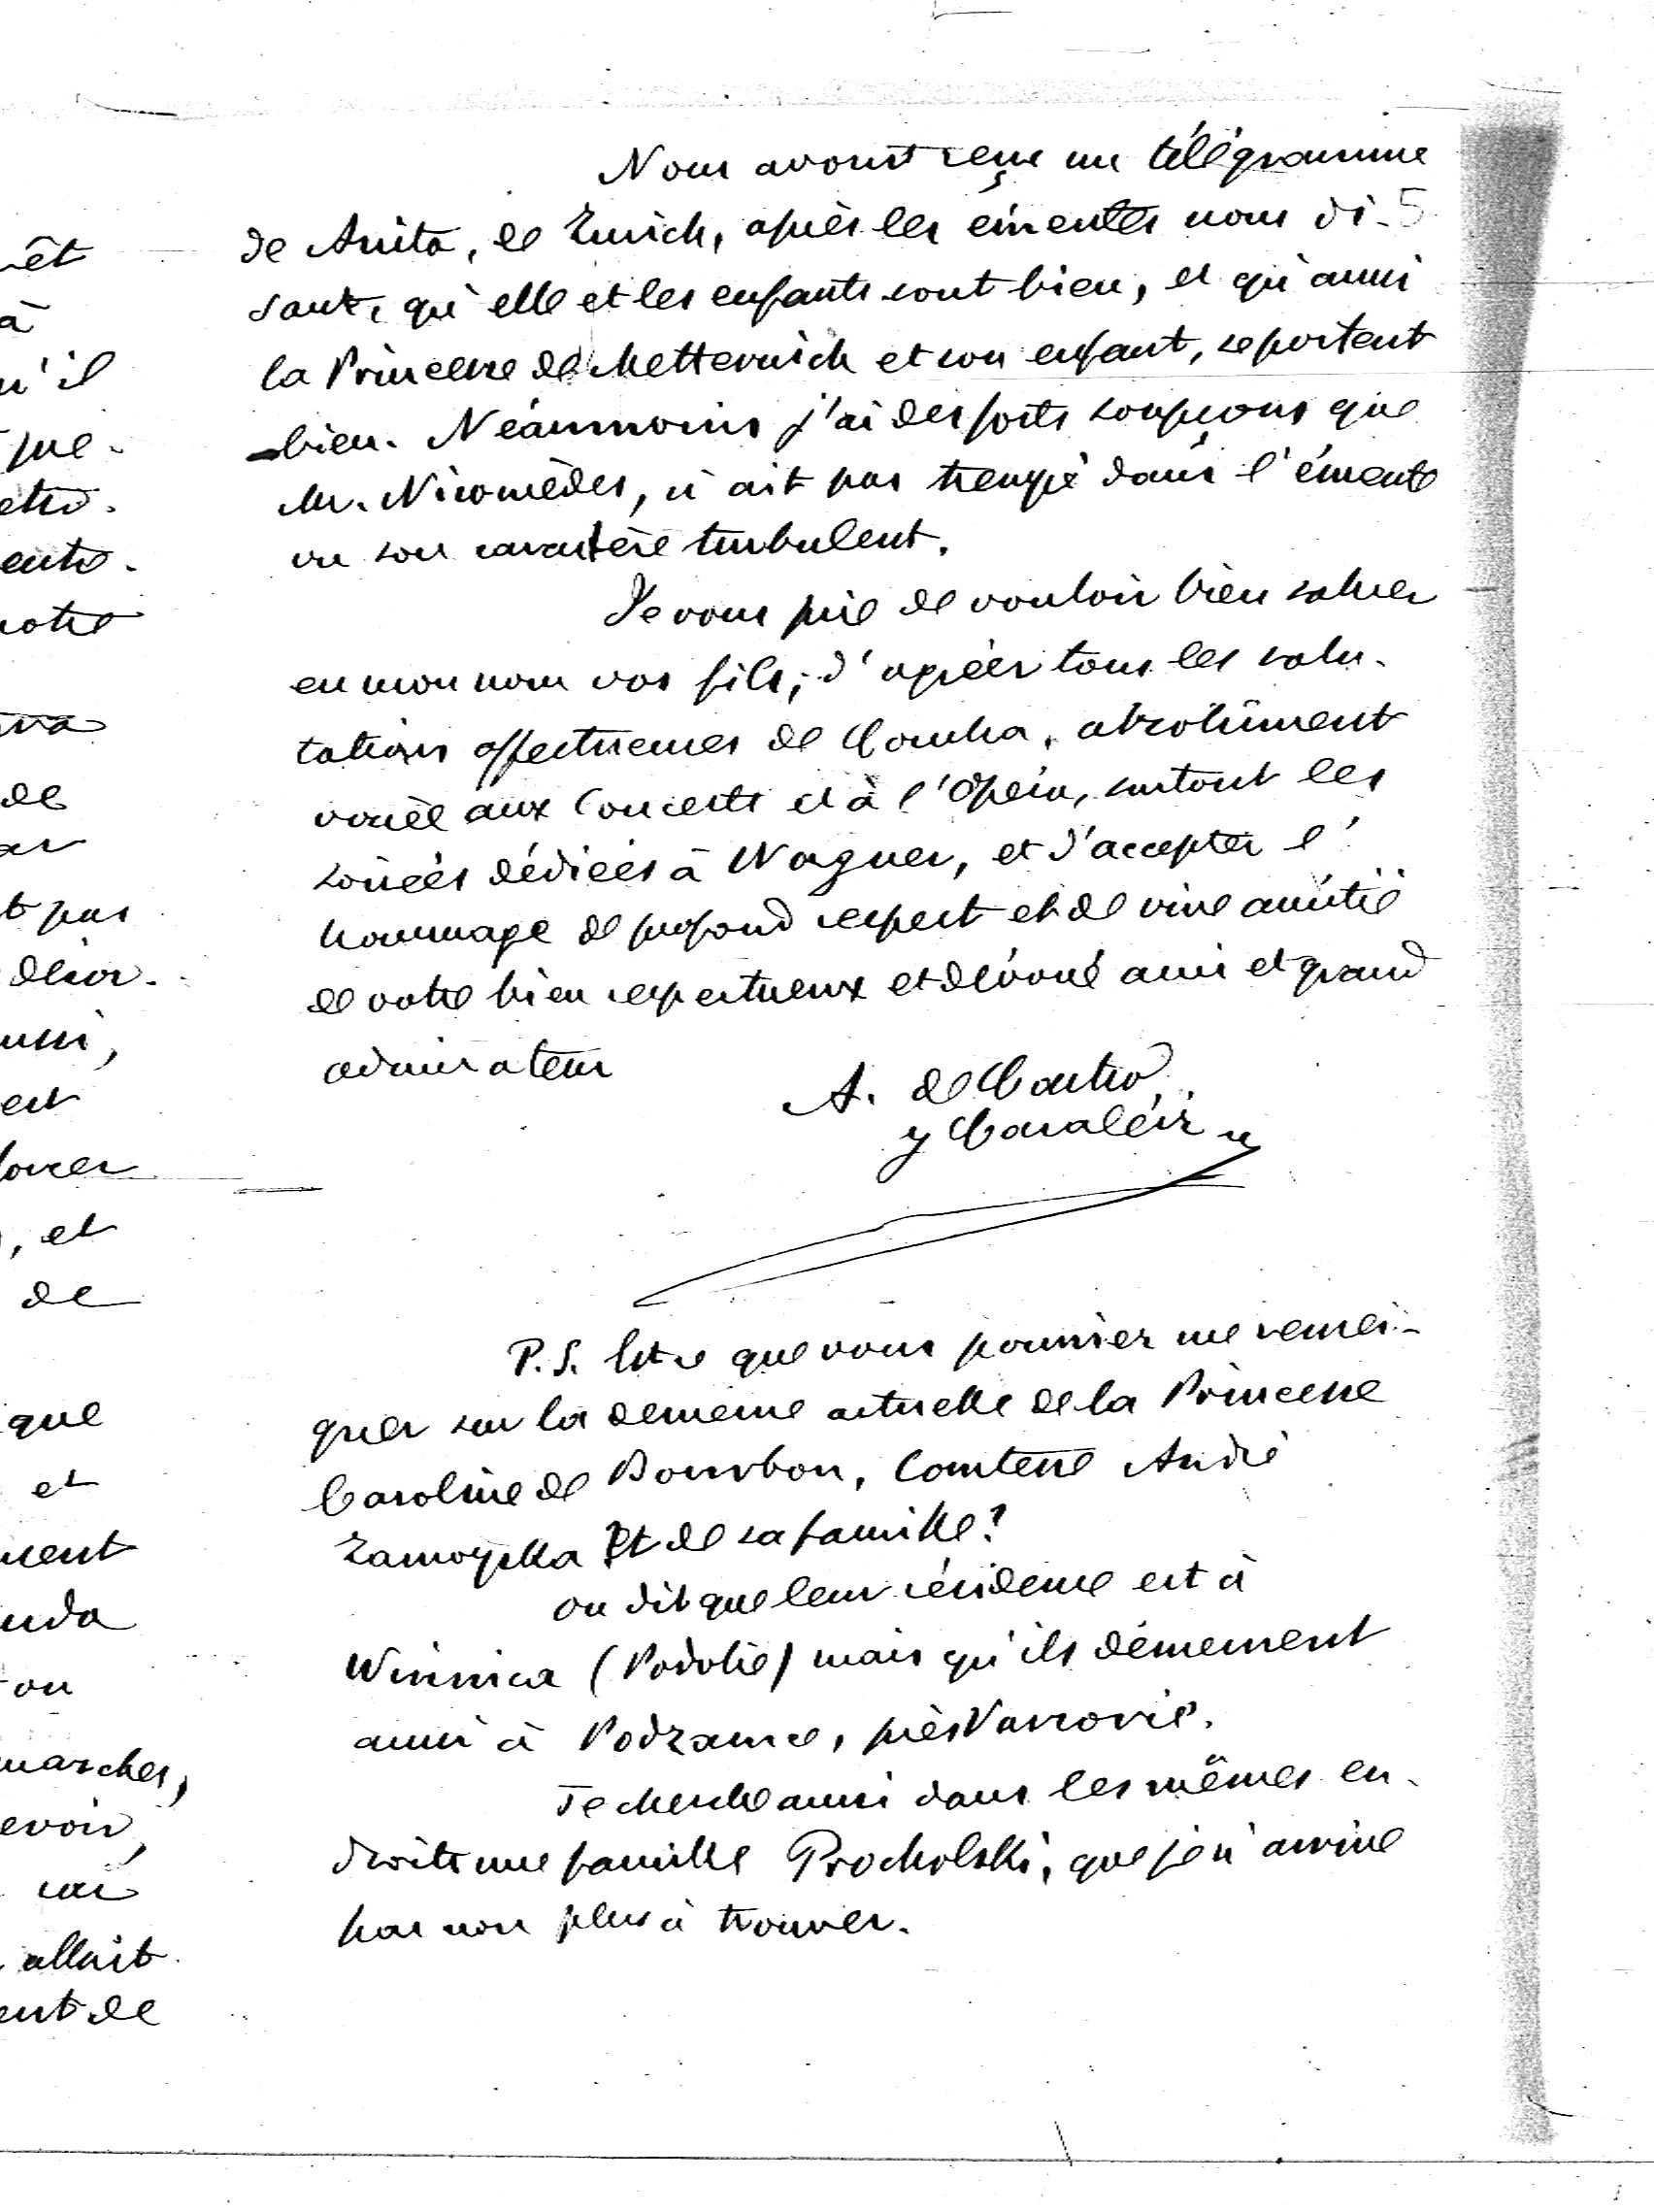 Nous avons reçu un télégramme
de Anita, de Zurich, après les émeutes nous di-
5
sant, qu'elle et les enfants sont bien, et qu'aussi
la Princesse de Metternich et son enfant, se portent
bien. Néanmoins j'ai des forts soupçons que
Mr. Nicomèdes, n'ait pas trempé dans l'émeute
vu son caractère turbulent.
Je vous prie de vouloir bien saluer
en mon nom vos fils, d'agréer tous les salu-
tations affectueuses de Concha, absolument
vouée aux Concerts et à l'Opéra, surtout les
soirées dédiées à Wagner, et d'accepter l'
hommage de profond respect et de vive amitié
de votre bien respectueux et dévoué ami et grand
admirateur
A. de Castro
y Casaléiz
P.S. Est-ce que vous pourriez me rensei-
gner sur la demeure actuelle de la Princesse
Caroline de Bourbon, Comtesse André
Zamoyska et de sa famille?
on dit que leur résidence est à
Winnica (Podolie) mais qu'ils demeurent
aussi à Podzamce, près Varsovie.
Je cherche aussi dans les mêmes en-
droits une famille Procholski, que je n'arrive
pas non plus à trouver.
êt
à
n'il
que-
ento-
notre
de
ar
t pas
désor-
ussi,
est
, et
de
que
et
ment
on
marches,
evoir,
allait
ent de